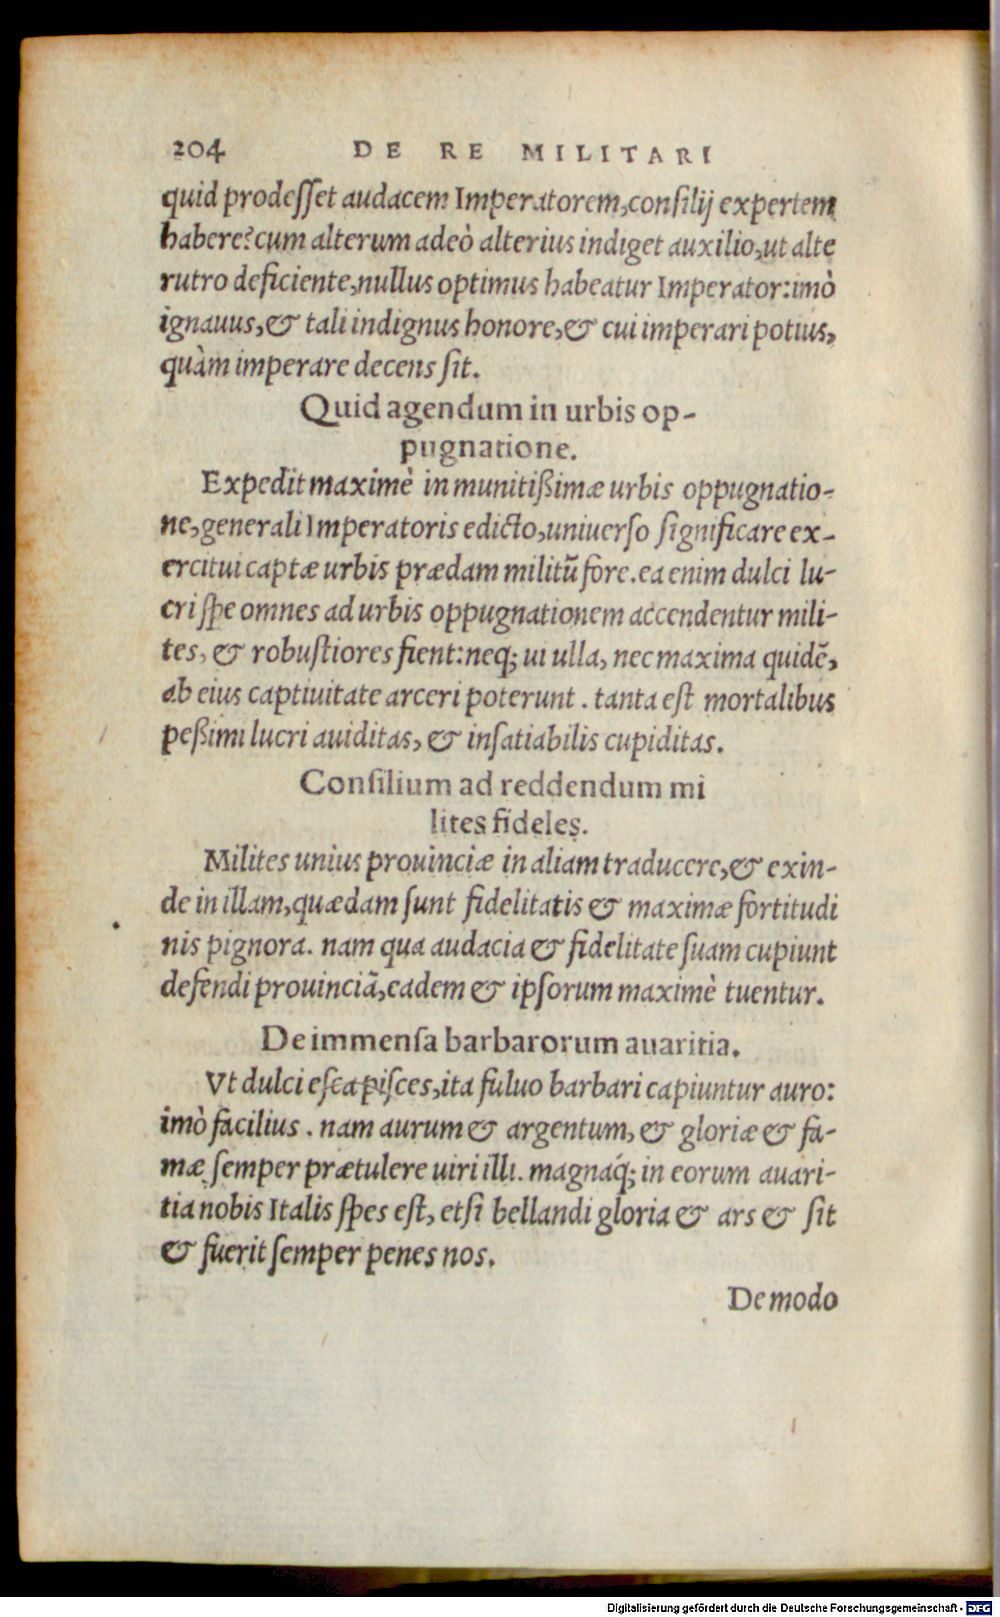 204 DE RE MILITARI
quid prodesſet audacem Imperatorem, conſilij expertem
habere? cum alterum adeò alterius indiget auxilio, ut alte
rutro deficiente, nullus optimus habeatur Imperator: imò
ignauus, & tali indignus honore, & cui imperari potius,
quàm imperare decens ſit.
Quid agendum in urbis op-
pugnatione.
Expedit maximè in munitißimæ urbis oppugnatio-
ne, generali Imperatoris edicto, uniuerſo ſignificare ex-
ercitui captæ urbis prædam militū fore. ea enim dulci lu-
cri ſpe omnes ad urbis oppugnationem accendentur mili-
tes, & robuſtiores fient: neq; ui ulla, nec maxima quidē,
ab eius captiuitate arceri poterunt. tanta eſt mortalibus
peßimi lucri auiditas, & inſatiabilis cupiditas.
Conſilium ad reddendum mi
lites fideles.
Milites unius prouinciæ in aliam traducere, & exin-
de in illam, quædam ſunt fidelitatis & maximæ fortitudi
nis pignora. nam qua audacia & fidelitate ſuam cupiunt
defendi prouinciā, eadem & ipſorum maximè tuentur.
De immenſa barbarorum auaritia.
Vt dulci eſca piſces, ita fuluo barbari capiuntur auro:
imò facilius. nam aurum & argentum, & gloriæ & fa-
mæ ſemper prætulere uiri illi. magnáq; in eorum auari-
tia nobis Italis ſpes eſt, etſi bellandi gloria & ars & ſit
& fuerit ſemper penes nos.
De modo
Digitalisierung gefördert durch die Deutsche Forschungsgemeinschaft - DFG